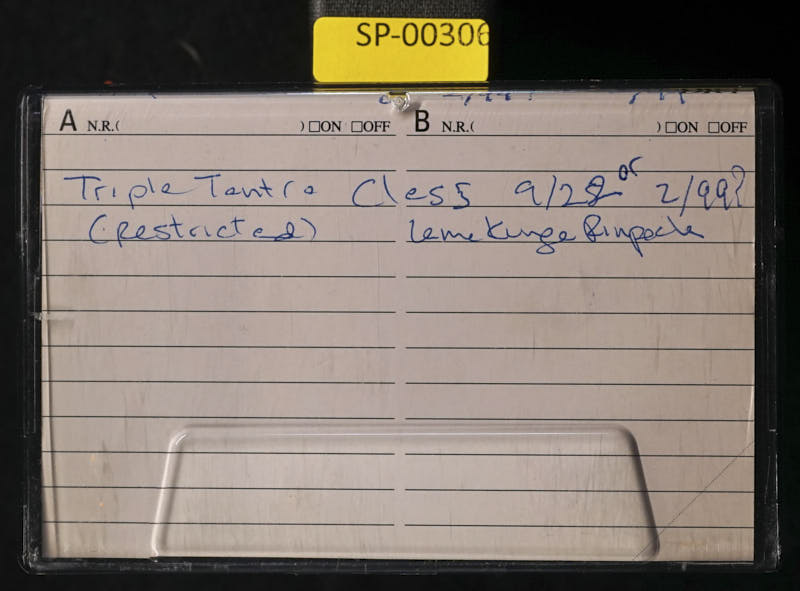 SP-00306
A N.R.( ) □ON □OFF B N.R.( ) □ON □OFF
Triple Tantra Class 9/28 or 2/99?
(restricted) Lama Kunga Rinpoche